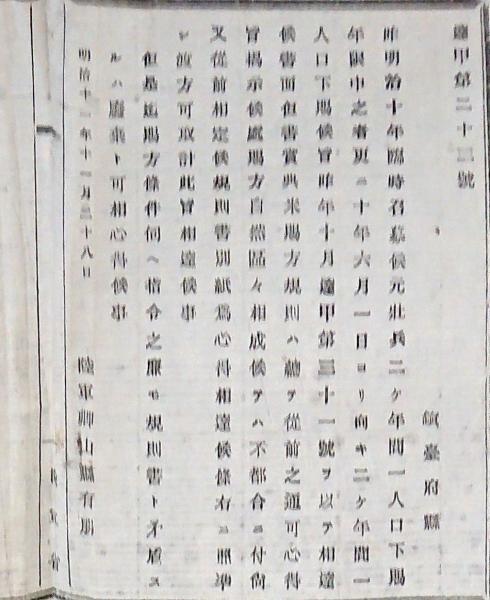 達甲第二十三號
鎮臺府縣
昨明治十年臨時召募候元壯兵二ケ年間一人口下賜
年限中之者更ニ十年六月一日ヨリ向キ二ケ年間一
人口下賜候旨昨年十月達甲第三十一號ヲ以テ相達
候書面但書賞典米賜方規則ハ總テ從前之通可心得
旨揭示候處賜方自然區々相成候テハ不都合ニ付尙
又從前相定候規則書別紙爲心得相達候條右ニ照準
シ渡方可取計此旨相達候事
但是迄賜方條件伺ヘ指令之廉モ規則書ト矛盾ス
ルハ廢棄ト可相心得候事
明治十一年十一月二十八日
陸軍卿山縣有朋
陸軍省